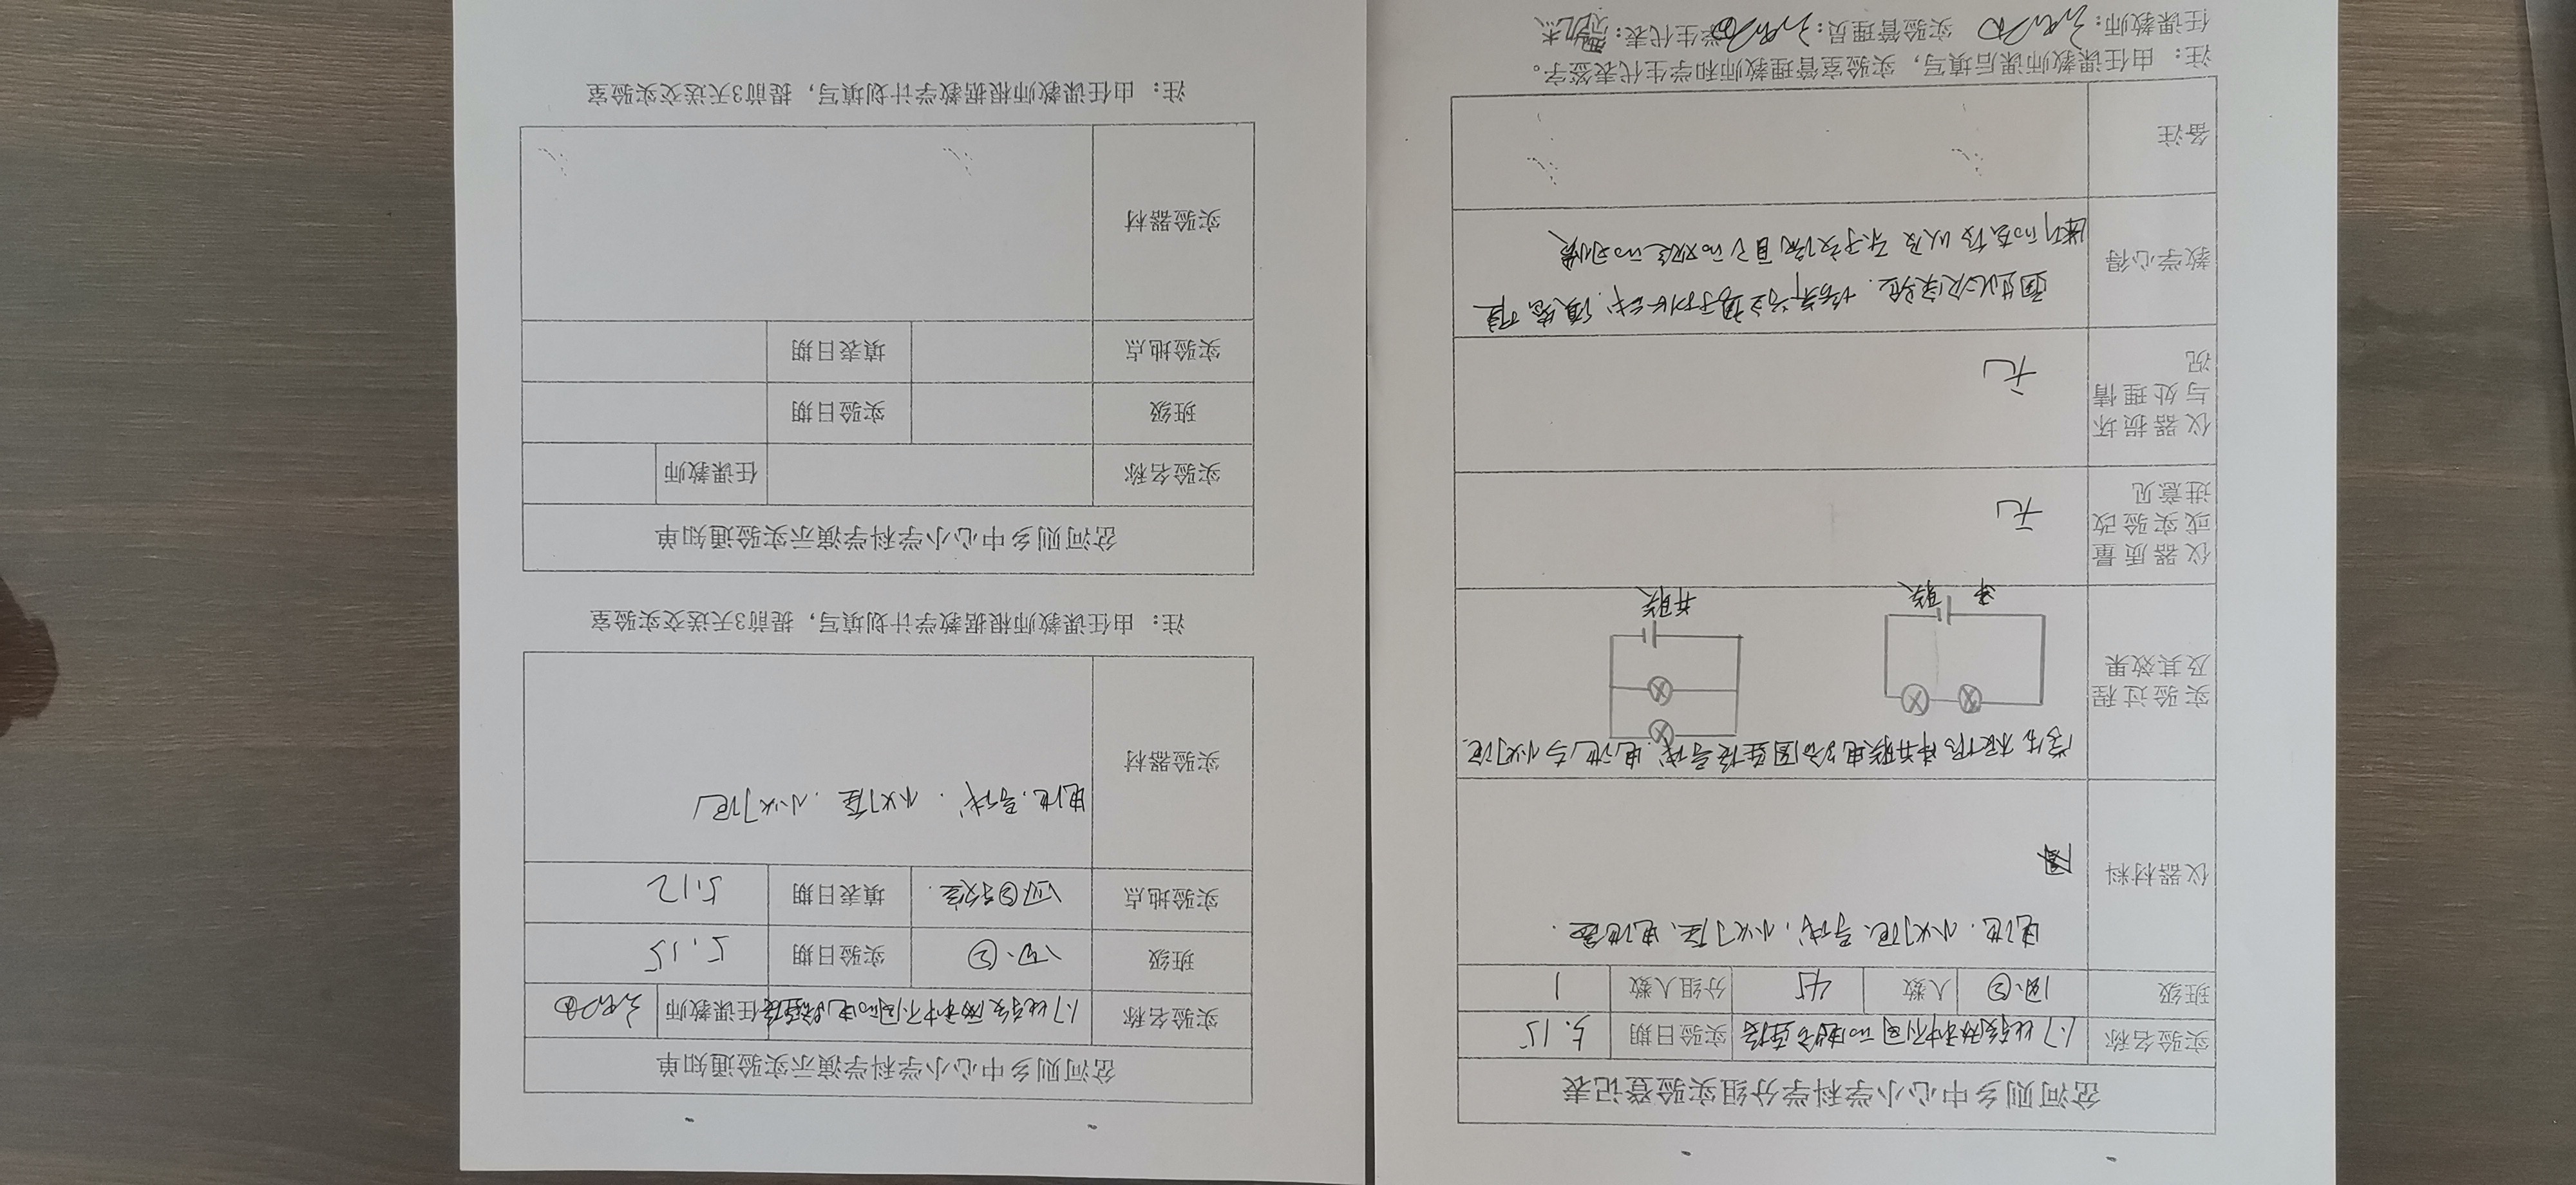 岔河则乡中心小学科学分组实验登记表
实验名称 1.7比较两种不同的电路连接 实验日期 5.15
班级 四.② 人数 45 分组人数 1
仪器材料 电池、小灯泡、导线、小灯座、电池盒.
实验过程及其效果 学生根据串并联电路图连接导线、电池与小灯泡.
串联 并联
仪器质量或实验改进意见 无
仪器损坏与处理情况 无
教学心得
备注
注: 由任课教师课后填写, 实验室管理教师和学生代表签字。
任课教师: 实验管理员: 学生代表:
岔河则乡中心小学科学演示实验通知单
实验名称 1.7比较两种不同的电路连接 任课教师
班级 四.② 实验日期 5.15
实验地点 四②教室. 填表日期 5.12
实验器材 电池、导线、小灯座、小灯泡
注: 由任课教师根据教学计划填写, 提前3天送交实验室
岔河则乡中心小学科学演示实验通知单
实验名称 任课教师
班级 实验日期
实验地点 填表日期
实验器材
注: 由任课教师根据教学计划填写, 提前3天送交实验室